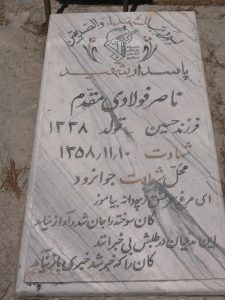 بسم رب الشهداء و الصدیقین
پاسدار شهید
ناصر فولادی مقدم
فرزند حسین تولد ۱۳۳۸
شهادت ۱۳۵۸/۱۱/۱۰
محل شهادت جوانرود
ای مرغ سحر عشق ز پروانه بیاموز
کان سوخته را جان شد و آواز نیامد
این مدعیان در طلبش بی خبرانند
کان را که خبر شد خبری باز نیامد